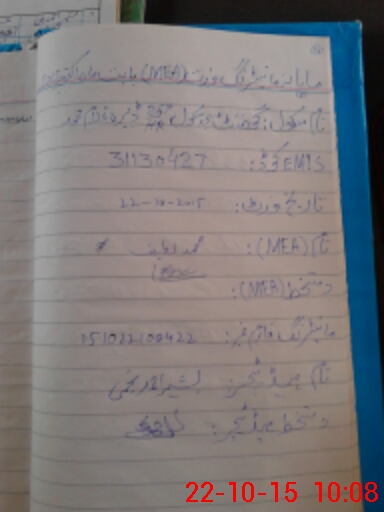 ماہانہ مانیٹرنگ وزٹ (MEA) بابت ماہ اکتوبر
نام سکول: گورنمنٹ
EMIS کوڈ: 31130427
تاریخ وزٹ: 22-10-2015
نام (MEA): محمد لطیف
دستخط (MEA):
مانیٹرنگ فارم نمبر: 151022100422
نام ہیڈ ٹیچر: بشیر احمد
دستخط ہیڈ ٹیچر:
22-10-15 10:08